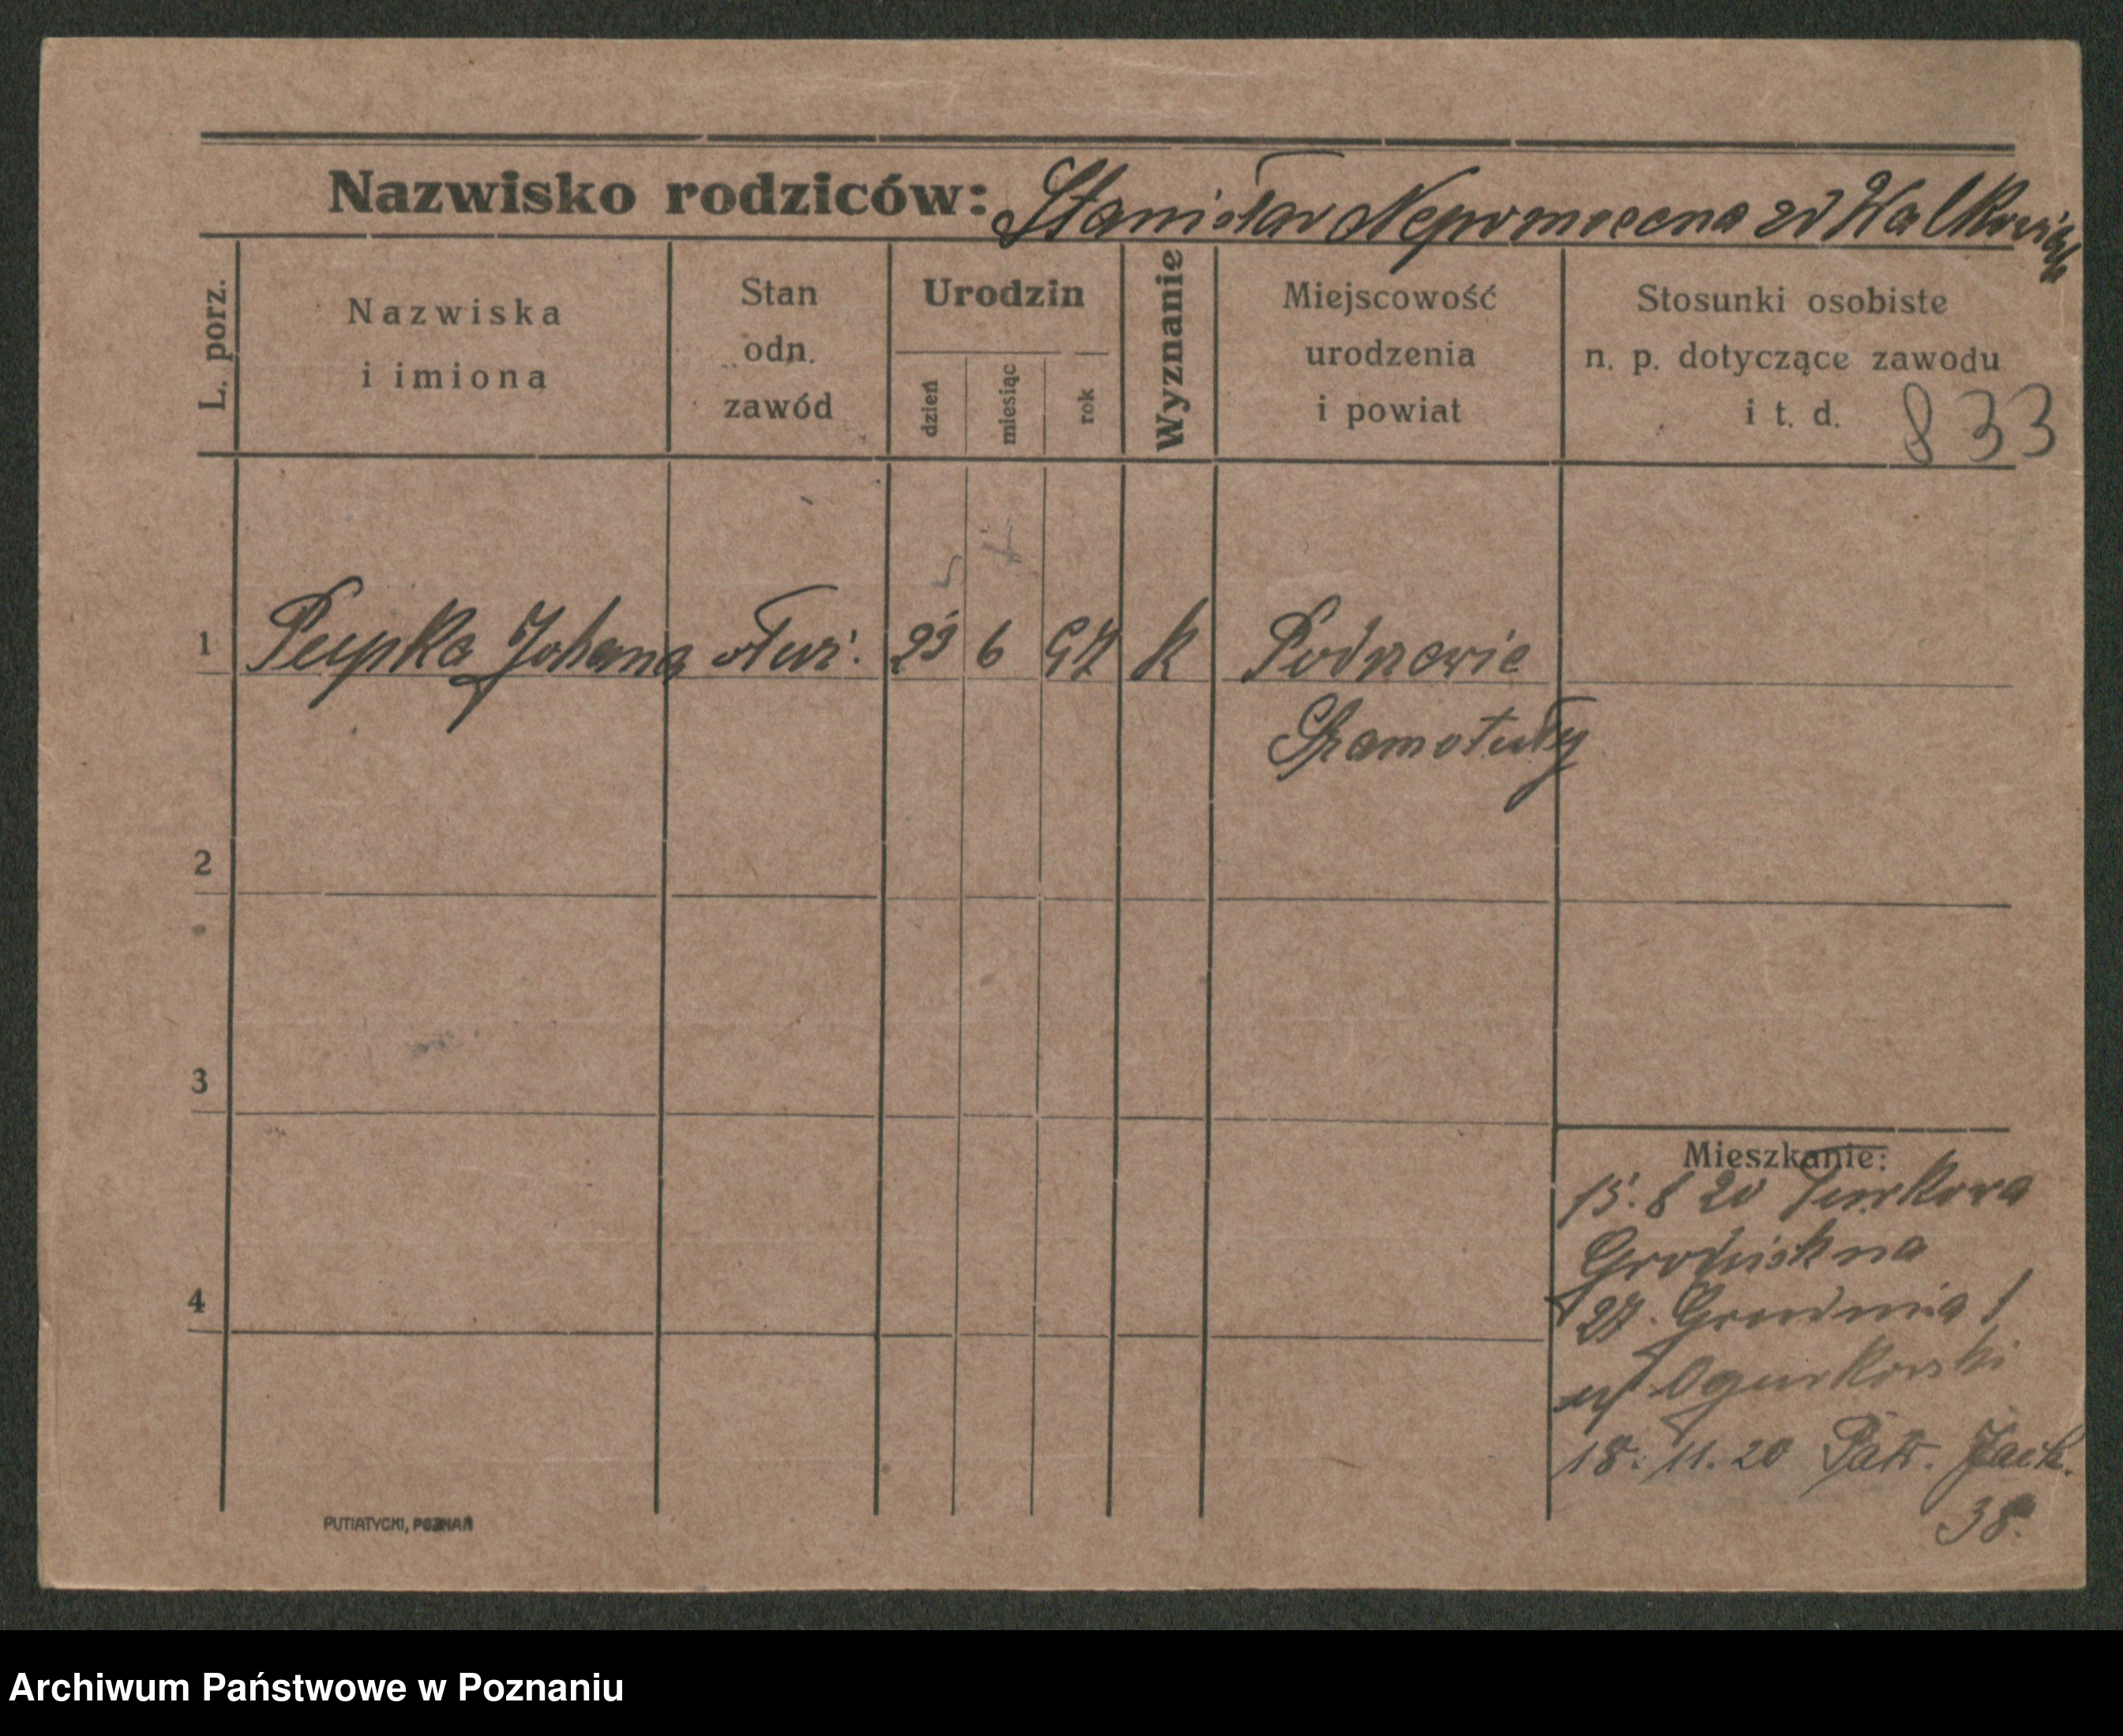 Nazwisko rodziców: Stanisław Nepomocena zd Walkowiak
L. porz.
Nazwiska
i imiona
Stan
odn.
zawód
Urodzin
dzień
miesiąc
rok
Wyznanie
Miejscowość
urodzenia
i powiat
Stosunki osobiste
n. p. dotyczące zawodu
i t. d. 833
1 Pupka Johana służ. 23 6 97 k
Szamotuły
2
3
4
Mieszkanie:
15. 8 20
Grodzisk na
27. Grudnia 1
Ogurkowski
18. 11. 20 Patr. Jack.
38.
PUTIATYCKI, POZNAŃ
Archiwum Państwowe w Poznaniu